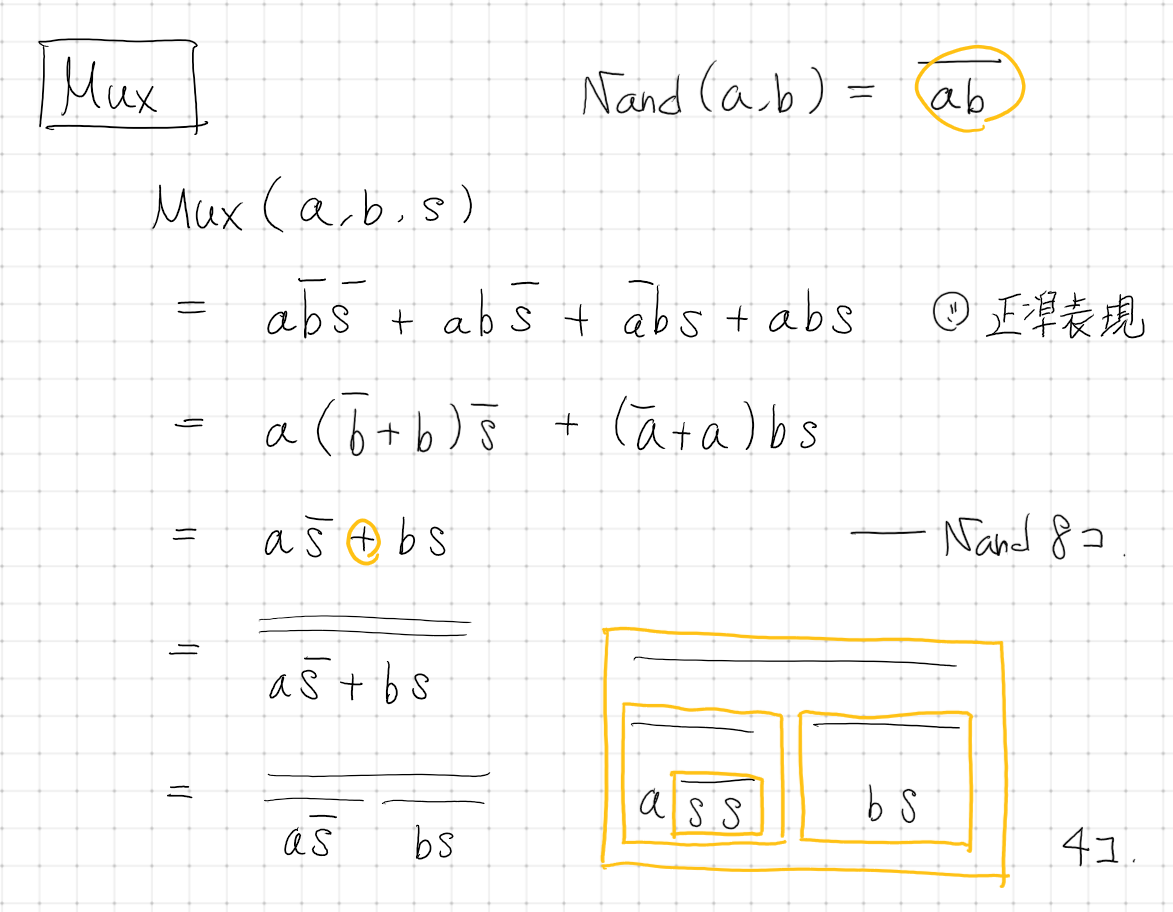 Mux
Nand(a,b) = \overline{ab}
Mux(a,b,s)
= a\bar{b}\bar{s} + ab\bar{s} + \bar{a}bs + abs ∵ 正準表現
= a(\bar{b}+b)\bar{s} + (\bar{a}+a)bs
= a\bar{s} + bs — Nand 8コ.
= \overline{\overline{a\bar{s} + bs}}
= \overline{\overline{a\bar{s}} \overline{bs}}
\overline{\overline{a\overline{ss}} \overline{bs}} 4コ.